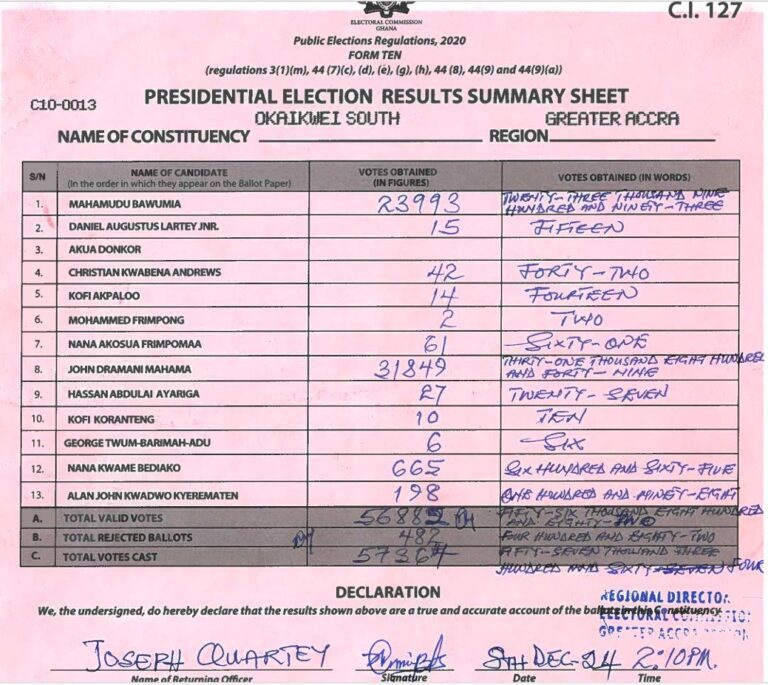 C.I. 127
ELECTORAL COMMISSION
GHANA
Public Elections Regulations, 2020
FORM TEN
(regulations 3(1)(m), 44 (7)(c), (d), (e), (g), (h), 44 (8), 44(9) and 44(9)(a))
PRESIDENTIAL ELECTION RESULTS SUMMARY SHEET
C10-0013
OKAIKWEI SOUTH GREATER ACCRA
NAME OF CONSTITUENCY REGION
S/N NAME OF CANDIDATE (In the order in which they appear on the Ballot Paper) VOTES OBTAINED (IN FIGURES) VOTES OBTAINED (IN WORDS)
1. MAHAMUDU BAWUMIA 23993 TWENTY-THREE THOUSAND NINE HUNDRED AND NINETY-THREE
2. DANIEL AUGUSTUS LARTEY JNR. 15 FIFTEEN
3. AKUA DONKOR
4. CHRISTIAN KWABENA ANDREWS 42 FORTY-TWO
5. KOFI AKPALOO 14 FOURTEEN
6. MOHAMMED FRIMPONG 2 TWO
7. NANA AKOSUA FRIMPOMAA 61 SIXTY-ONE
8. JOHN DRAMANI MAHAMA 31849 THIRTY-ONE THOUSAND EIGHT HUNDRED AND FORTY-NINE
9. HASSAN ABDULAI AYARIGA 27 TWENTY-SEVEN
10. KOFI KORANTENG 10 TEN
11. GEORGE TWUM-BARIMAH-ADU 6 SIX
12. NANA KWAME BEDIAKO 665 SIX HUNDRED AND SIXTY-FIVE
13. ALAN JOHN KWADWO KYEREMATEN 198 ONE HUNDRED AND NINETY-EIGHT
A. TOTAL VALID VOTES 56882 FIFTY-SIX THOUSAND EIGHT HUNDRED AND EIGHTY-TWO
B. TOTAL REJECTED BALLOTS 482 FOUR HUNDRED AND EIGHTY-TWO
C. TOTAL VOTES CAST 57364 FIFTY-SEVEN THOUSAND THREE HUNDRED AND SIXTY-SEVEN FOUR
DECLARATION
We, the undersigned, do hereby declare that the results shown above are a true and accurate account of the ballots in this Constituency
REGIONAL DIRECTOR
ELECTORAL COMMISSION
GREATER ACCRA REGION
JOSEPH QUARTEY 8TH DEC-24 2:10PM.
Name of Returning Officer Signature Date Time